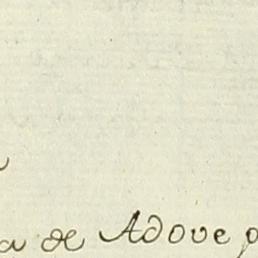 a de Adove p